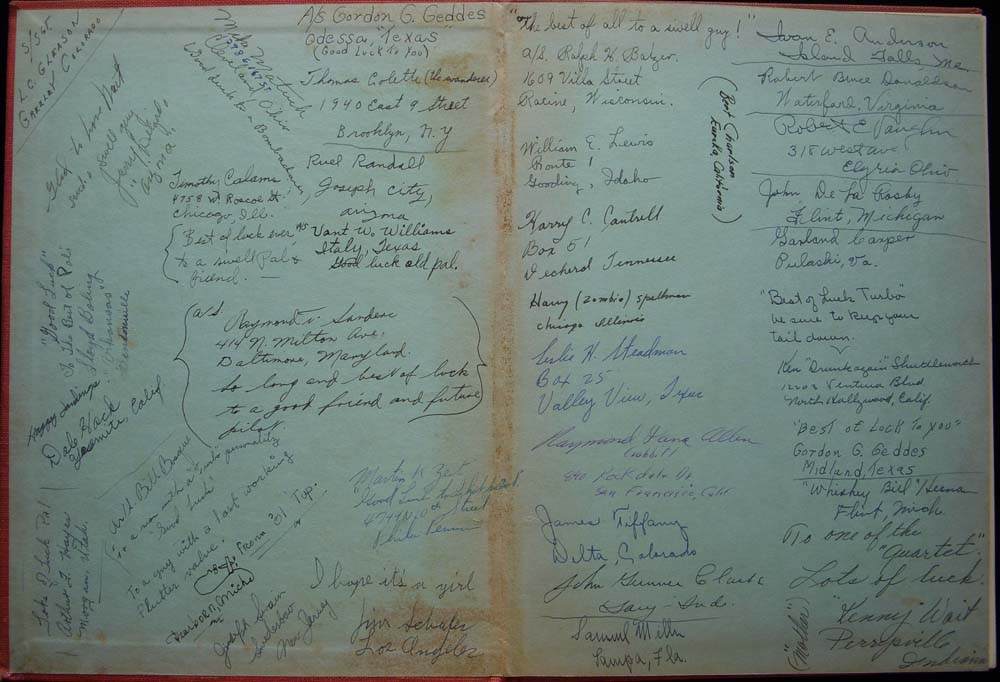 S/Sgt.
L.C. Gleason
Greeley Colorado
Glad to have met
such a swell guy
"Jerry" 
Arizona.
Mike Matuch
Cleveland, Ohio
Good luck to a Bombardier
A/S Gordon G. Geddes
Odessa, "Texas
(Good Lock To You)
Thomas Colette (the wanderer)
1940 East 9 Street
Brooklyn, N.Y
Ruel Randall
Joseph City,
Arizona
Timothy Calams
4758 W. Roscoe St.
Chicago, Ill.
(Best of luck ever
to a swell Pal &
friend.
A/S Vant W. Williams
Italy, Texas
Good luck old pal.
"Good Luck"
To The Best of Pals
Lloyd
Arkansas
Bentonville
a/s.
Raymond V. Sanders
414 N. Milton Ave.
Baltimore, Maryland.
So long and best of luck
to a good friend and future
pilot.
Happy landings
Dale Hack
Yosemite, Calif
Lots of Luck Pal!
Arthur L. Hayes
Magna, Utah.
A/S Bill
"To a man with a personality
Good Luck"
To a guy with a last working
flutter valve.
From '01 Tup.
Dearborn, Mich
Joseph
New Jersey
Martin K.
"Good Luck
4744 N. 10th Street
Phila Penna
I hope it's a girl
Jim Schafer
Los Angeles
"The best of all to a swell guy!"
A/S. Ralph H. Balzer.
1609 Villa Street
Racine, Wisconsin.
William E. Lewis
Route 1
Gooding, Idaho
(Bert Charlson
Eureka, California)
Harry C. Cantrell
Box 51
Decherd Tennessee
Harry (Zombie) Spellman
Chicago Illinois
Leslie H. Steadman
Box 25
Valley View, Texas
Raymond Allen
San Francisco, Calif
James Tiffany
Delta, Colorado
John Gunnar Clark
Gary - Ind.
Samuel Miller
Tampa, Fla.
Ivan E. Anderson
Island Falls Me
Robert Bruce Donaldson
Waterford, Virginia
Robert E Vaughn
318 West ave
Elyria Ohio.
John De La
Flint, Michigan
Garland Casper
Pulaski, Va.
"Best of Luck Turbo"
be sure to keep your
tail down.
Ken "Drunk again" Shuttleworth
12203 Ventura Blvd
North Hollywood, Calif.
"Best of Lock To Yoo"
Gordon G. Geddes
Midland, Texas
"Whiskey Bill"
Flint, Mich
To one of the
"Quartet".
Lots of luck.
"Kenny" Wait
Perrysville
Indiana